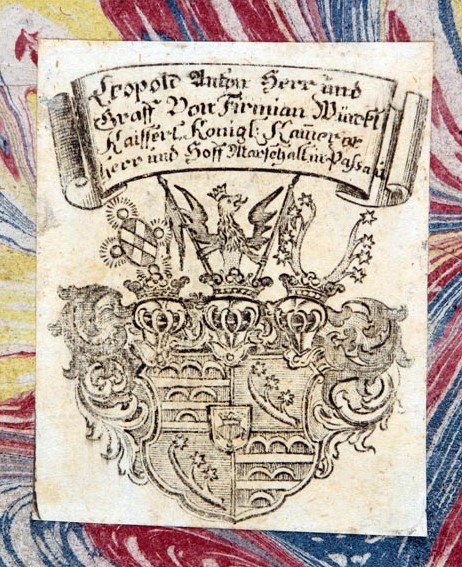 Leopold Anton Herr und
Graff Von Firmian Würckl
Kaißerl. Konigl: Kamerer
herr und Hoff Marschall in Passau